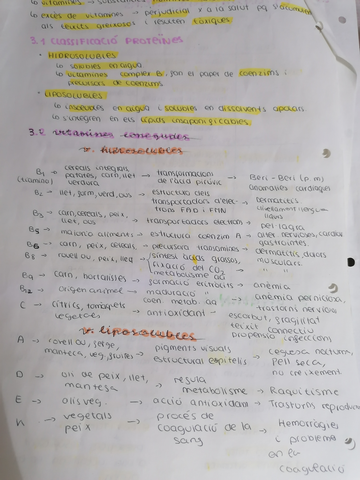 vitamines → substàncies
excés de vitamines → perjudicial x a la salut pq s'acumulen
als teixits greixosos i resulten tòxiques.
3.1 CLASSIFICACIÓ PROTEÏNES
• HIDROSOLUBLES
↳ solubles en aigua
↳ vitamines complex B: fan el paper de coenzims i
precursors de coenzims
• LIPOSOLUBLES
↳ insolubles en aigua i solubles en dissolvents apolars
↳ s'integren en els lípids insaponificables.
3.2. vitamines conegudes
↳ hidrosolubles
B1 → cereals integrals,
patates, carn, llet → transformació → Beri-Beri (p.m)
(tiamina) verdura de l'àcid pirúvic anomalies cardíaques
B2 → llet, form, verd, ous → estructura dels → dermatitis
transportadors d'elect.
fran FAD i FMN
B3 → carn, cereals, peix, → transportadors electrons → pel·lagra
llet, ous
B5 → majoria aliments → estructura coenzim A → alter nervioses, cardio
gastrointes.
B6 → carn, peix, cereals → precursora transamines → dermatitis, dolors
B8 → rovell ou, peix, lleg → síntesi àcids grassos, musculars.
fixació del CO2
metabolisme aa
B9 → carn, hortalisses → formació eritròcits → anèmia
B12 → origen animal → maduració → anèmia perniciosa,
coen. metab. aa trastorns nerviosos
C → cítrics, tomàquets → antioxidant → escorbut, fragilitat
vegetals teixit connectiu
propensió infeccions
↳ liposolubles
A → rovell ou, fetge, → pigments visuals → ceguesa nocturna,
mantega, veg, fruites estructural epitelis pell seca,
no creixement
D → oli de peix, llet, → regula
mantega metabolisme → Raquitisme
E → olis veg. → acció antioxidant → Trastorn reproductor
K → vegetals → procés de → Hemorràgies
peix coagulació de la i problemes
sang en la
coagulació